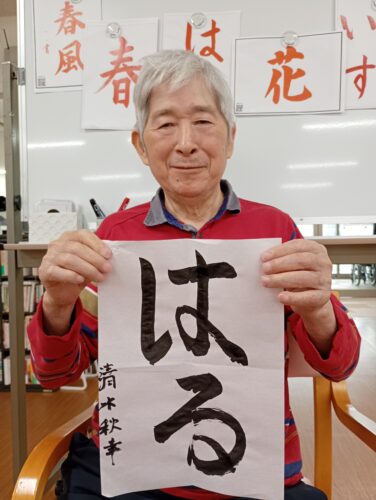 春風
春
は
花
いす
はる
清水秋幸